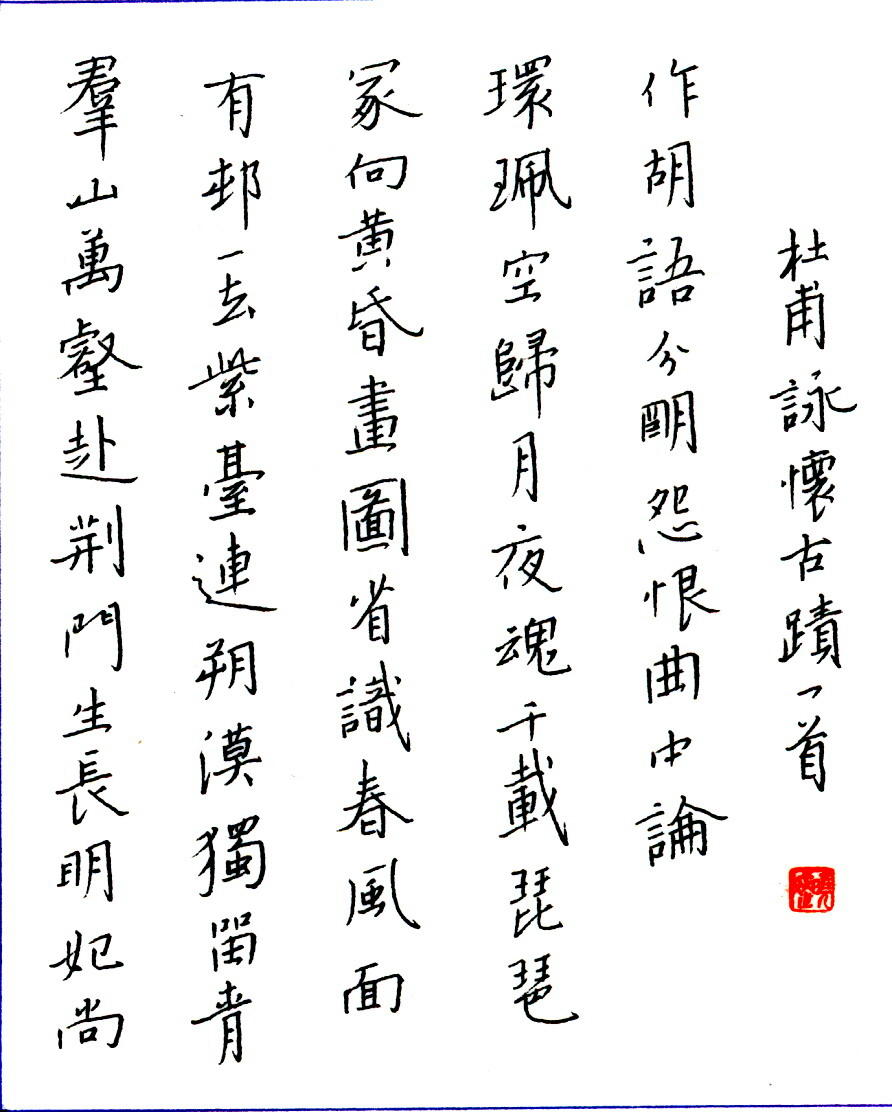 羣山萬壑赴荆門生長明妃尚
有邨一去紫臺連朔漠獨留青
冢向黄昏畫圖省識春風面
環珮空歸月夜魂千載琵琶
作胡語分明怨恨曲中論
杜甫詠懷古蹟一首